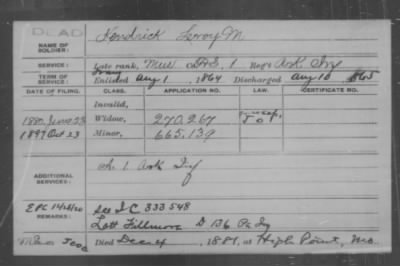 DEAD
NAME OF SOLDIER: Kendrick Leroy M.
SERVICE: Late rank, Mus Co. 1 Reg't Ark Inf
TERM OF SERVICE: Enlisted Aug 1, 1864 Discharged Aug 10, 865
DATE OF FILING. CLASS. APPLICATION NO. LAW. CERTIFICATE NO.
Invalid,
1880, June 23 Widow, 270.267
1897 Oct 23 Minor, 665.139
ADDITIONAL SERVICES: Ark Inf
REMARKS: See I C 333548
Lott Fillmore D 136 Pa Inf
Died Dec 24, 1881, at High Point, Mo.